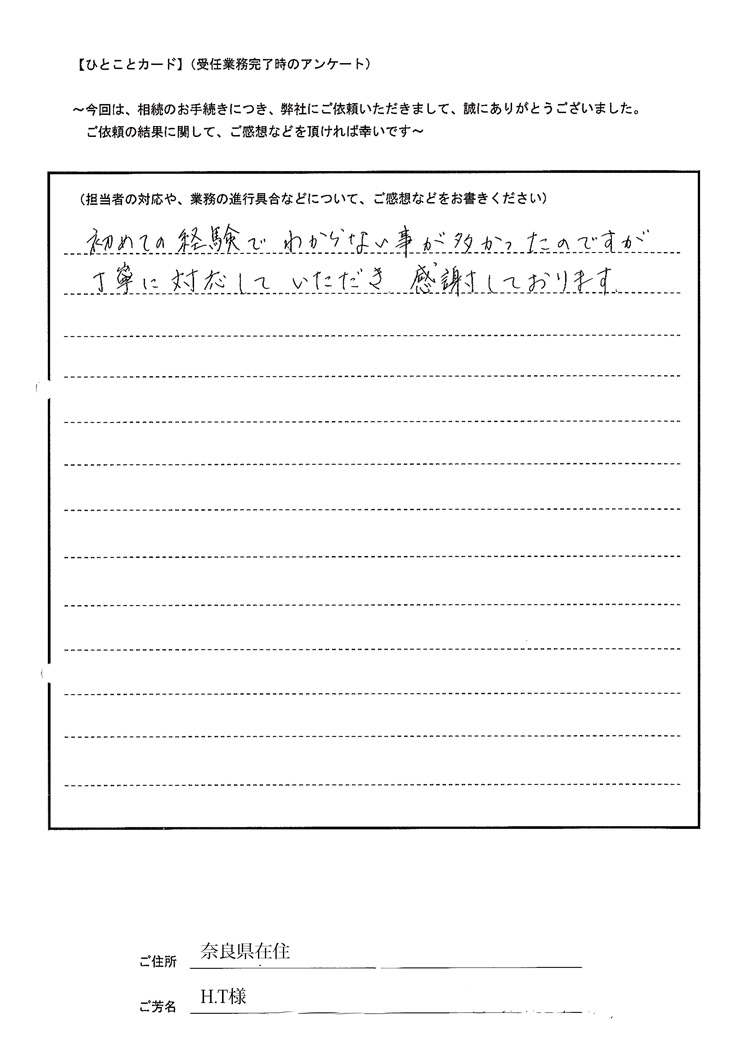 【ひとことカード】(受任業務完了時のアンケート)
～今回は、相続のお手続きにつき、弊社にご依頼いただきまして、誠にありがとうございました。
ご依頼の結果に関して、ご感想などを頂ければ幸いです～
(担当者の対応や、業務の進行具合などについて、ご感想などをお書きください)
初めての経験で わからない事が多かったのですが
丁寧に対応して いただき 感謝しております。
ご住所 奈良県在住
ご芳名 H.T様